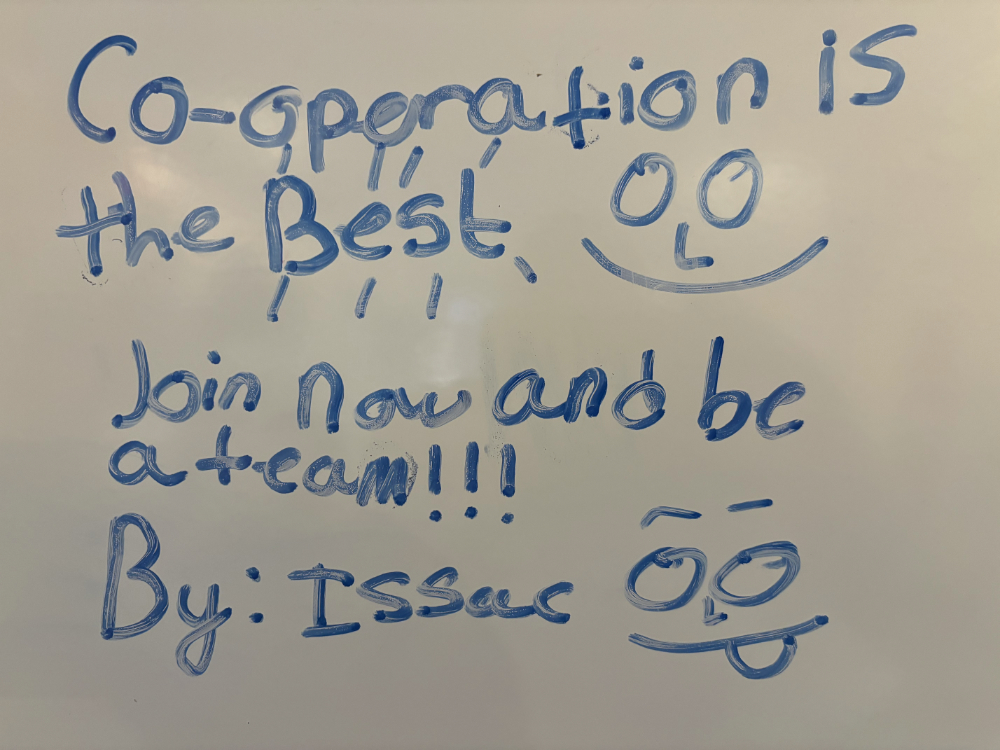 Co-operation is
the Best
Join Now and be
a team!!!
By: Issac